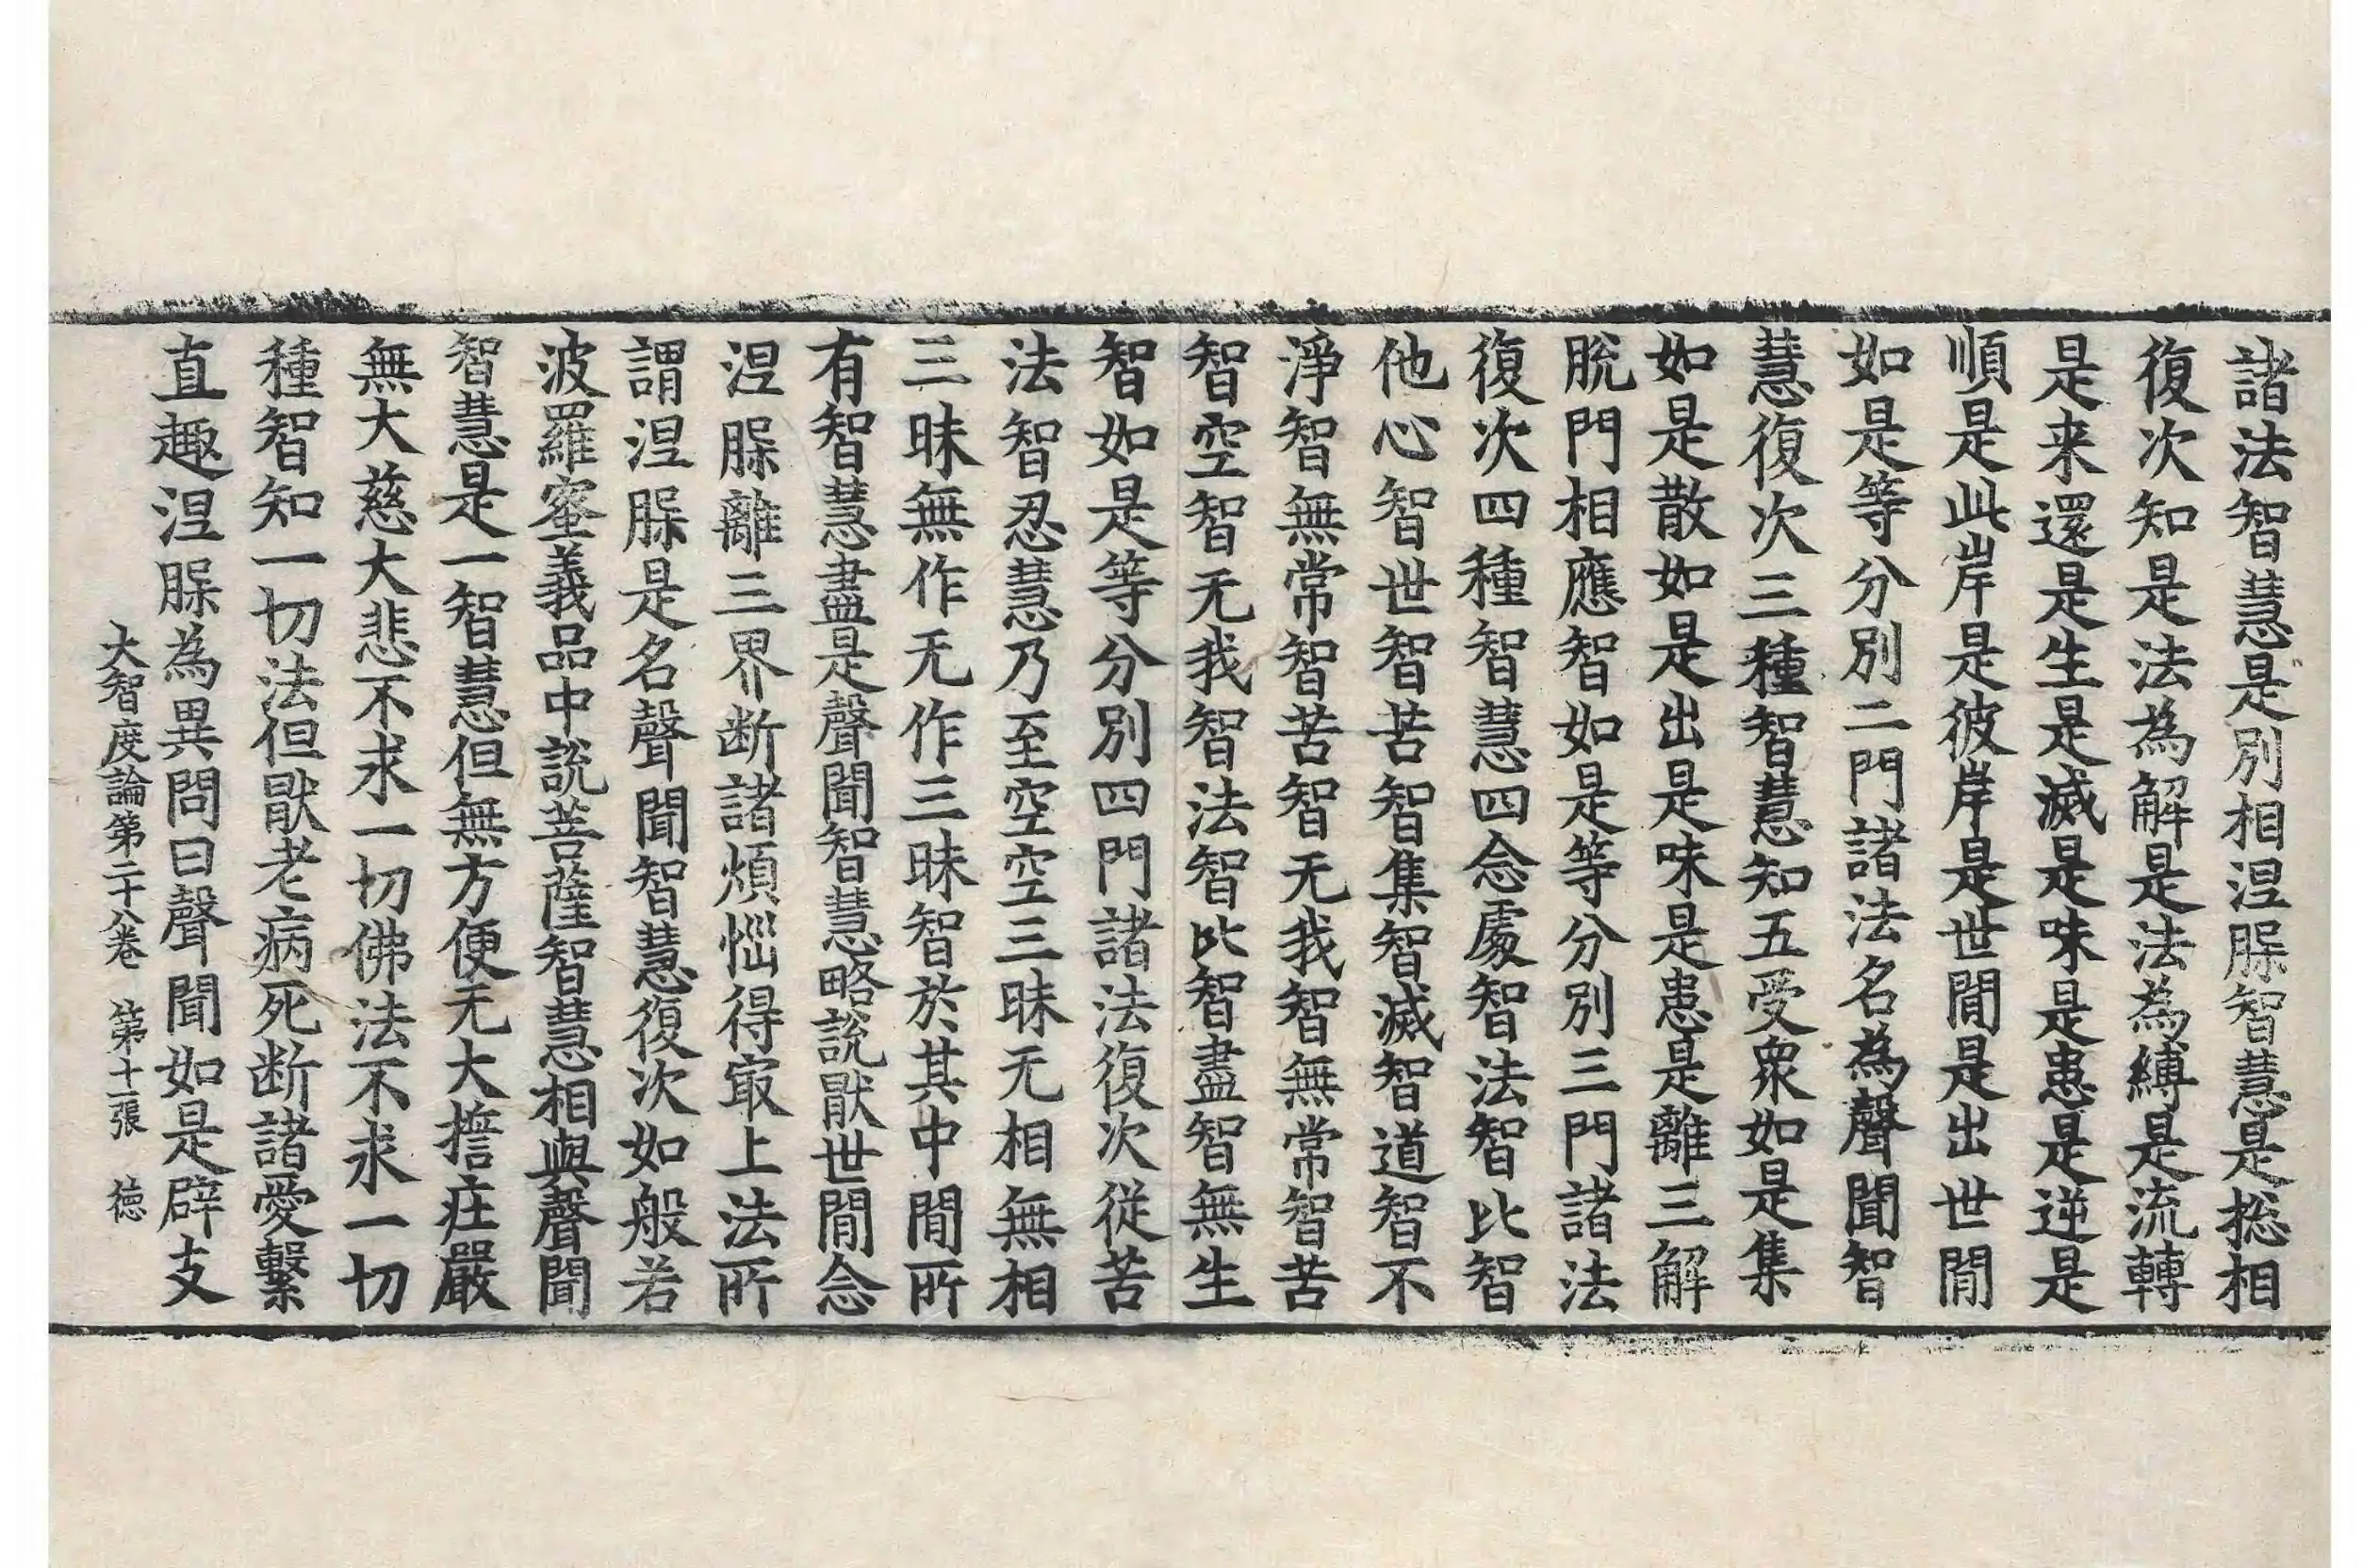 諸法智慧是別相涅脲智慧是揔相
復次知是法為解是法為縛是流轉
是来還是生是滅是味是患是逆是
順是此岸是彼岸是世間是出世間
如是等分別二門諸法名為聲聞智
慧復次三種智慧知五受衆如是集
如是散如是出是味是患是離三解
脫門相應智如是等分別三門諸法
復次四種智慧四念處智法智比智
他心智世智苦智集智滅智道智不
淨智無常智苦智无我智無常智苦
智空智无我智法智比智盡智無生
智如是等分別四門諸法復次從苦
法智忍慧乃至空空三昧无相無相
三昧無作无作三昧智於其中間所
有智慧盡是聲聞智慧略說猒世間念
涅脲離三界断諸煩惱得冣上法所
謂涅脲是名聲聞智慧復次如般若
波羅蜜義品中說菩薩智慧相與聲聞
智慧是一智慧但無方便无大擔庄嚴
無大慈大悲不求一切佛法不求一切
種智知一切法但猒老病死断諸愛繫
直趣涅脲為異問曰聲聞如是辟支
大智度論第二十八卷 第十一張 徳